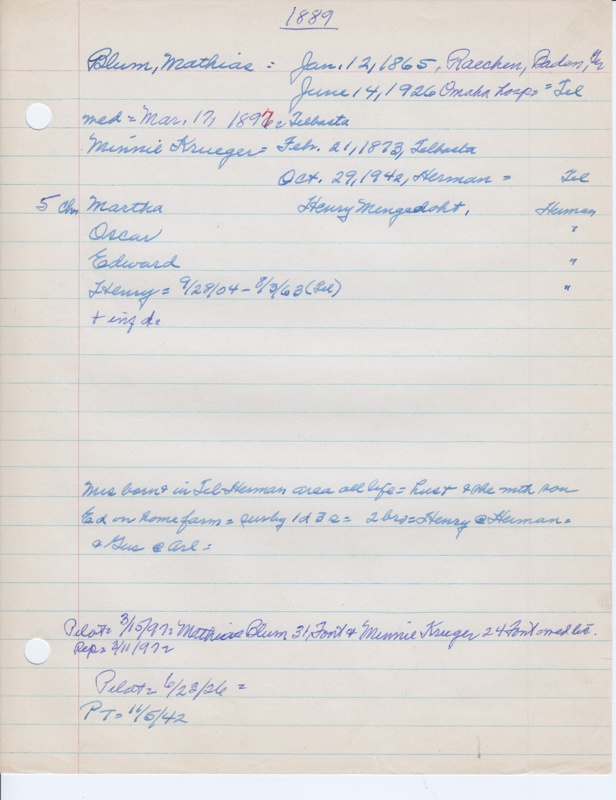 1889
Blum, Mathias = Jan. 12, 1865, Raechen, Baden, Ger
June 14, 1926 Omaha hosp = Tel
med = Mar. 17, 1897 = Telbasta
Minnie Krueger = Feb. 21, 1873, Telbasta
Oct. 29, 1942, Herman = Tel
5 Chn Martha Henry Mengedoht, Herman
Oscar "
Edward "
Henry = 9/28/04 - 8/3/63 (Tel) "
+ inf d.
Mrs born & in Tel-Herman area all life = hust & she mth son
Ed on home farm = surby 1d 3s = 2 bro = Henry @ Herman =
& Gus @ Arl =
Pilot = 3/15/97 = Mathias Blum 31 Font & Minnie Krueger 24 Font = med lic.
Rep = 3/11/97 =
Pilot = 6/23/26 =
PT = 11/5/42